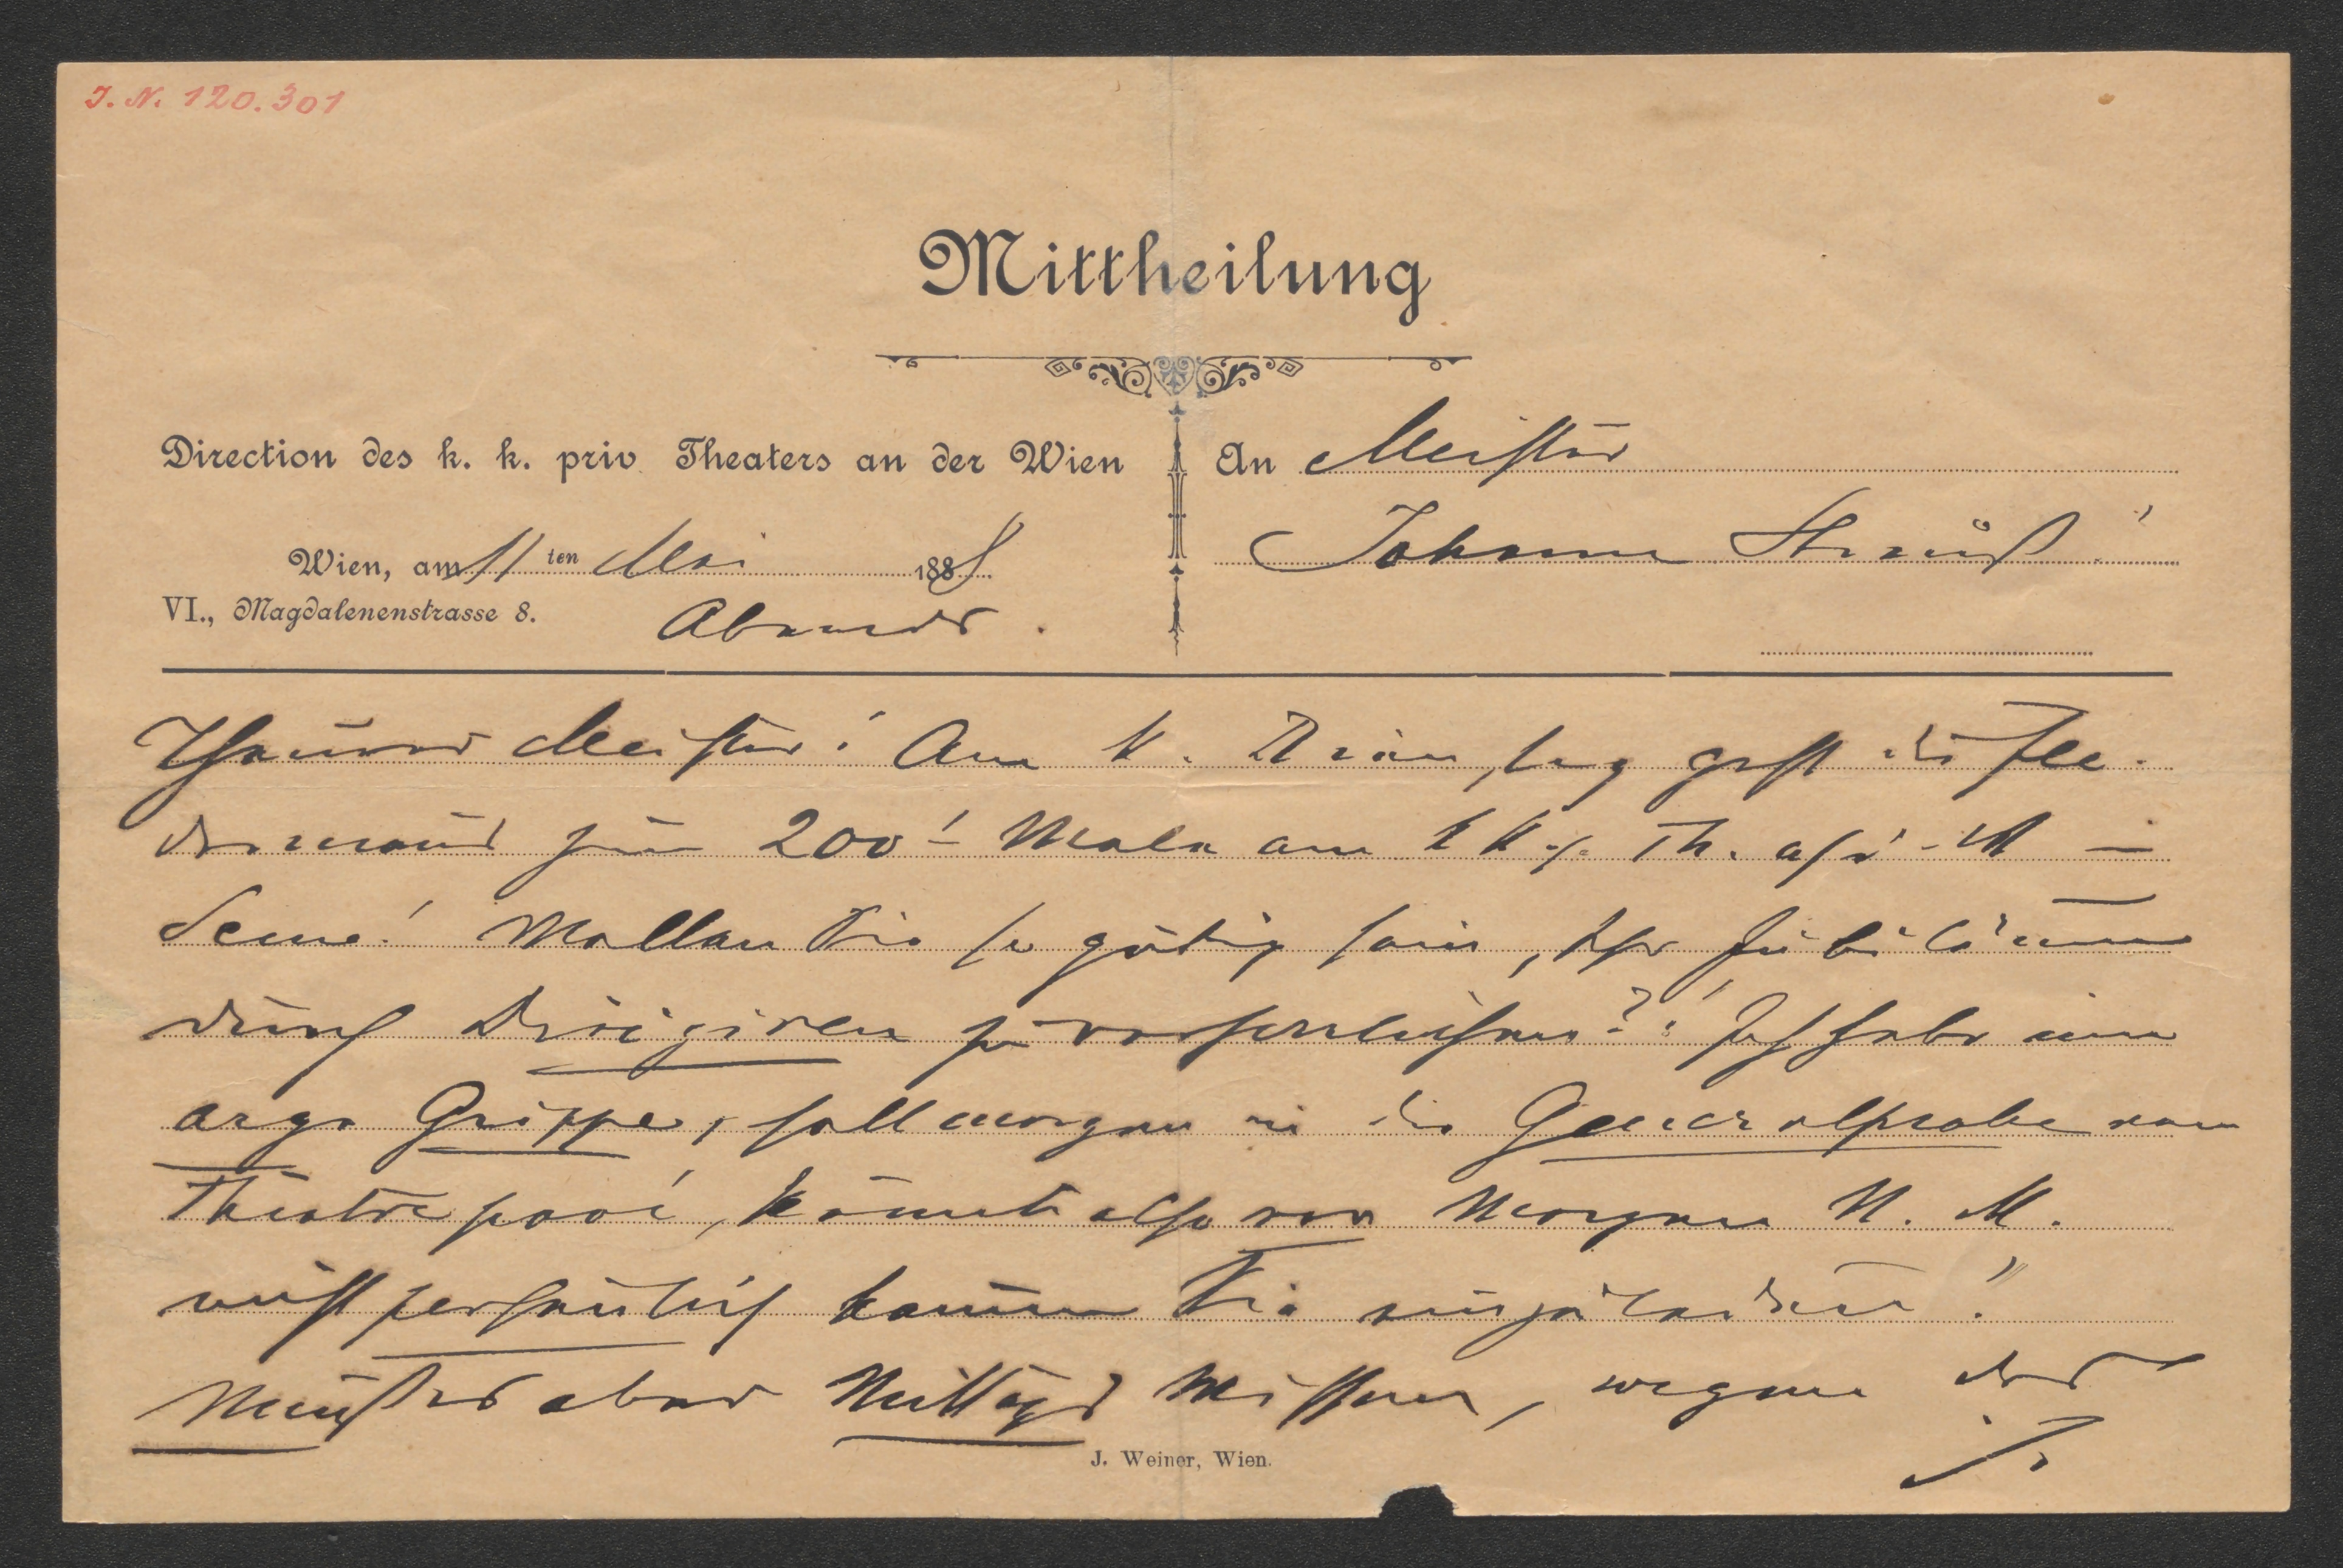 J. N. 120.301
Mittheilung
Direction des k. k. priv. Theaters an der Wien
Wien, am 11ten Mai 1888
VI., Magdalenenstrasse 8.
Abends.
An Meister
Johann Strauß!
Theurer Meister! Am k. Dienstag geht die Fle-
dermaus zum 200! Male am k k p. Th. a/d. W in
Scene! Wollen Sie so gütig sein, Ihr Jubiläum
durch Dirigiren zu verherrlichen?! Ich habe eine
arge Grippe, soll morgen in die Generalprobe vom
Theatre paré, könnte also vor Morgen N. M.
nicht persönlich kommen Sie einzuladen!
Müßte es aber Mittags wissen, wegen der
J. Weiner, Wien.